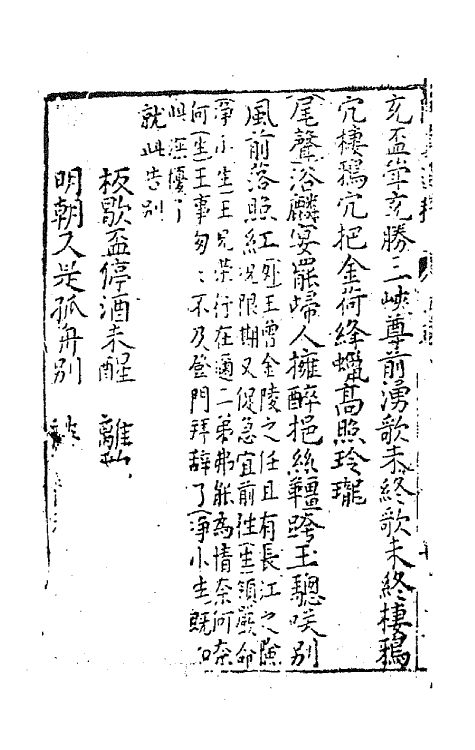 充盃常充勝三峽尊前湧歌未終歌未終棲鴉
冗棲鴉冗把金荷絳蠟高照玲瓏
尾聲洛麟宴罷歸人擁醉挹絲韁跨玉驄咲別
風前落照紅
王曾金陵之任且有長江之險
况限期又促急宜前往生領嚴命
淨小生王兄榮行在邇二弟弗能為情奈何奈
何生王事匆匆不及登門拜辞了淨小生既如
此深擾了
就此告別
板歇盃停酒未醒　離
明朝又是孤舟別